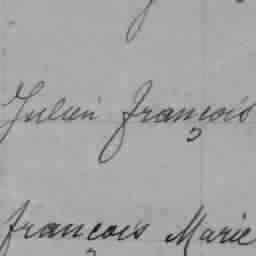 Julien françois
françois Marie